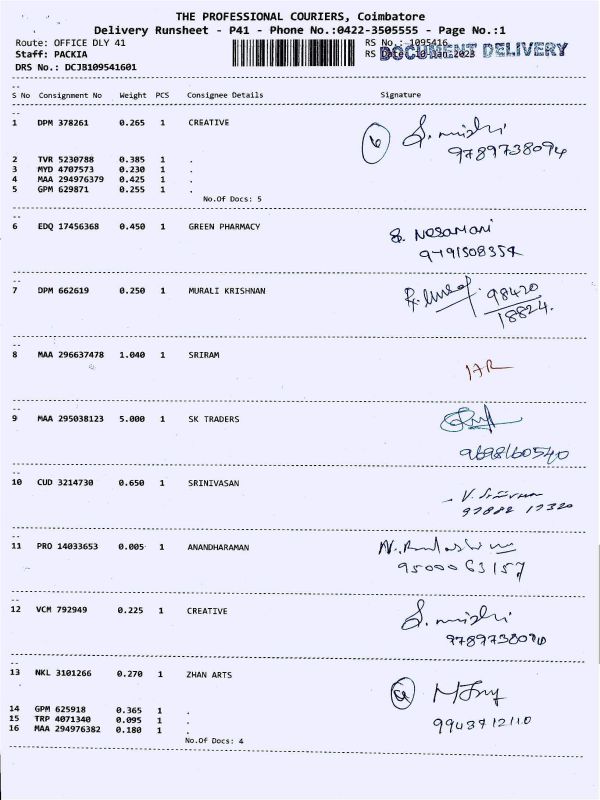 THE PROFESSIONAL COURIERS, Coimbatore
Delivery Runsheet - P41 - Phone No.:0422-3505555 - Page No.:1
Route: OFFICE DLY 41 RS No.: 1095416
Staff: PACKIA RS Date: 10-Jan-2023 DOCUMENT DELIVERY
DRS No.: DCJB109541601
S No Consignment No Weight PCS Consignee Details Signature
1 DPM 378261 0.265 1 CREATIVE
9789738094
2 TVR 5230788 0.385 1 .
3 MYD 4707573 0.230 1 .
4 MAA 294976379 0.425 1 .
5 GPM 629871 0.255 1 .
No.Of Docs: 5
6 EDQ 17456368 0.450 1 GREEN PHARMACY S. Nesamani
9791508354
7 DPM 662619 0.250 1 MURALI KRISHNAN 98420
18824.
8 MAA 296637478 1.040 1 SRIRAM
9 MAA 295038123 5.000 1 SK TRADERS
9698160540
10 CUD 3214730 0.650 1 SRINIVASAN
97882 17320
11 PRO 14033653 0.005 1 ANANDHARAMAN
9500063157
12 VCM 792949 0.225 1 CREATIVE
13 NKL 3101266 0.270 1 ZHAN ARTS
9943712110
14 GPM 625918 0.365 1 .
15 TRP 4071340 0.095 1 .
16 MAA 294976382 0.180 1 .
No.Of Docs: 4